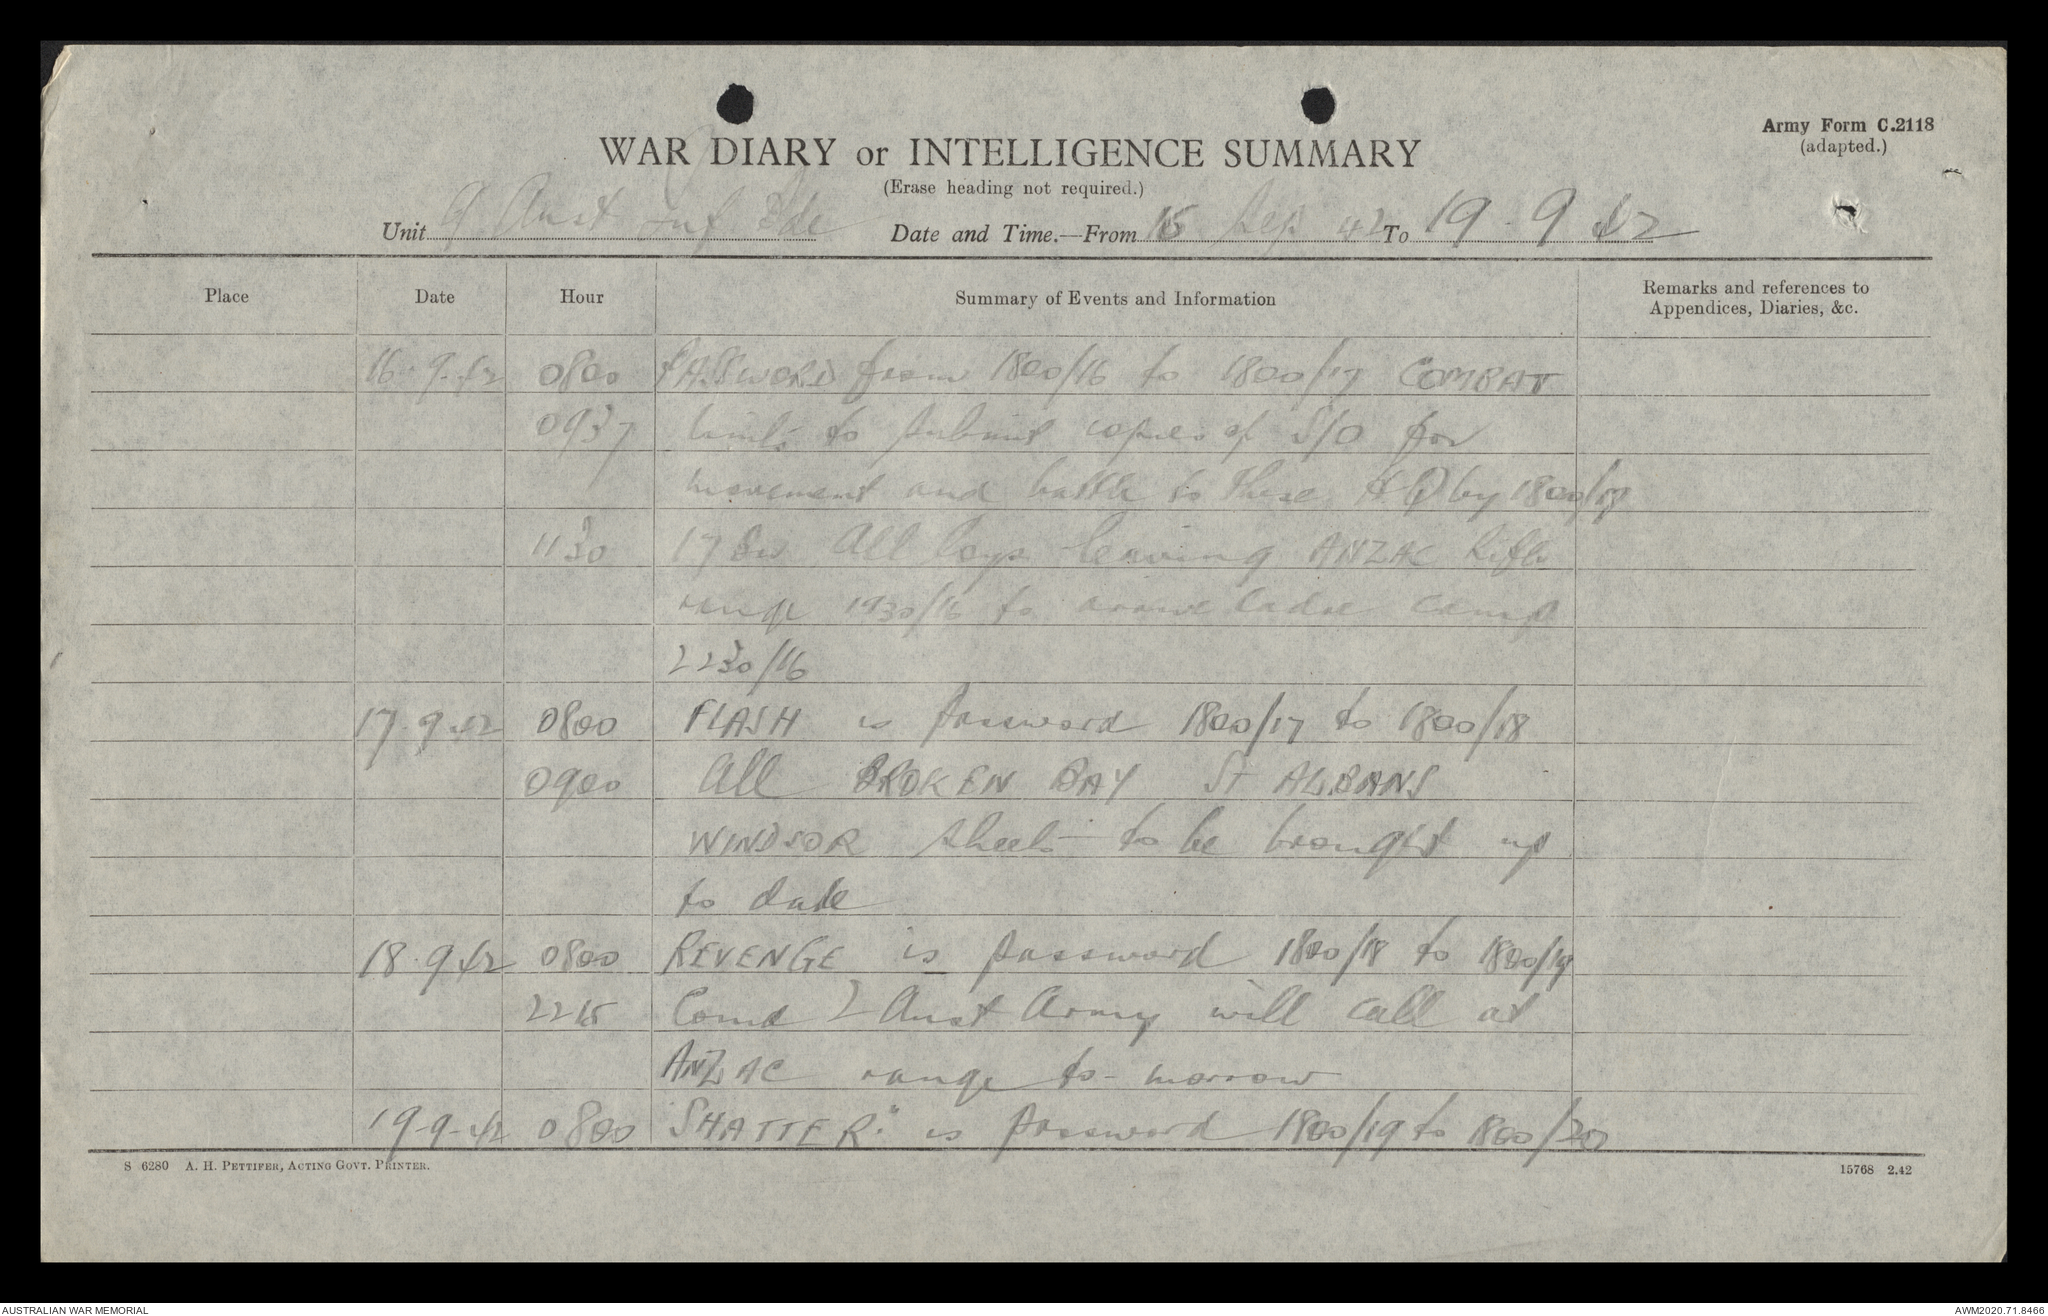 Army Form C.2118
WAR DIARY or INTELLIGENCE SUMMARY
(adapted.)
(Erase heading not required.)
Unit 9 Aust Inf Bde Date and Time.—From 15 Sep 42 To 19-9-42
Place Date Hour Summary of Events and Information Remarks and references to
Appendices, Diaries, &c.
16-9-42 0800 PASSWORD from 1800/16 to 1800/17 COMBAT
0937 Units to submit copies of S/O for
movement and battle to these H.Q by 1800/17
1130 17 Bn All Coys leaving ANZAC Rifle
range 1930/16 to arrive camp
2230/16
17-9-42 0800 FLASH is password 1800/17 to 1800/18
0900 All BROKEN BAY St ALBANS
WINDSOR sheets to be brought up
to date
18-9-42 0800 REVENGE is password 1800/18 to 1800/19
2215 Comd 2 Aust Army will call at
ANZAC range to-morrow
19-9-42 0800 "SHATTER" is password 1800/19 to 1800/20
S 6280 A. H. PETTIFER, ACTING GOVT. PRINTER.
15768 2.42
AUSTRALIAN WAR MEMORIAL
AWM2020.71.8466